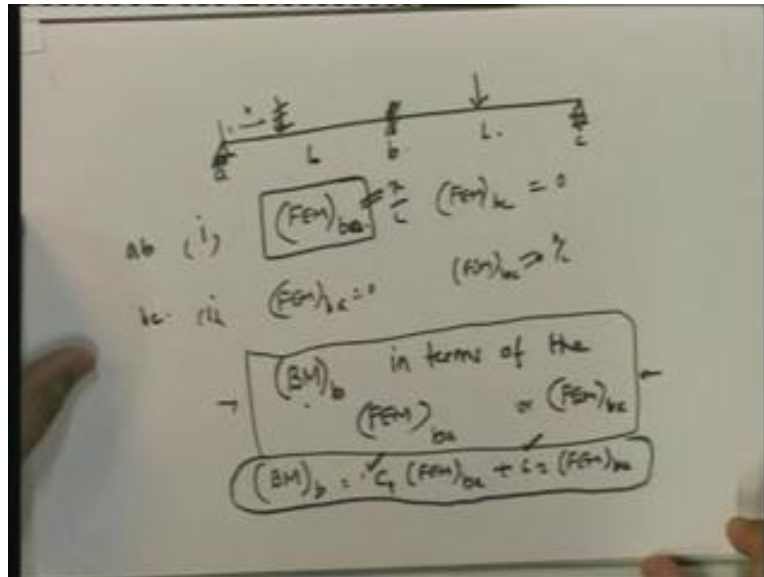 L b L. c
a
ab (i) (FEM)ba x/L (FEM)bc = 0
bc. (ii (FEM)ba = 0 (FEM)bc x/L
(BM)b in terms of the
(FEM)ba (FEM)bc
(BM)b = C1 (FEM)ba + C2 (FEM)bc